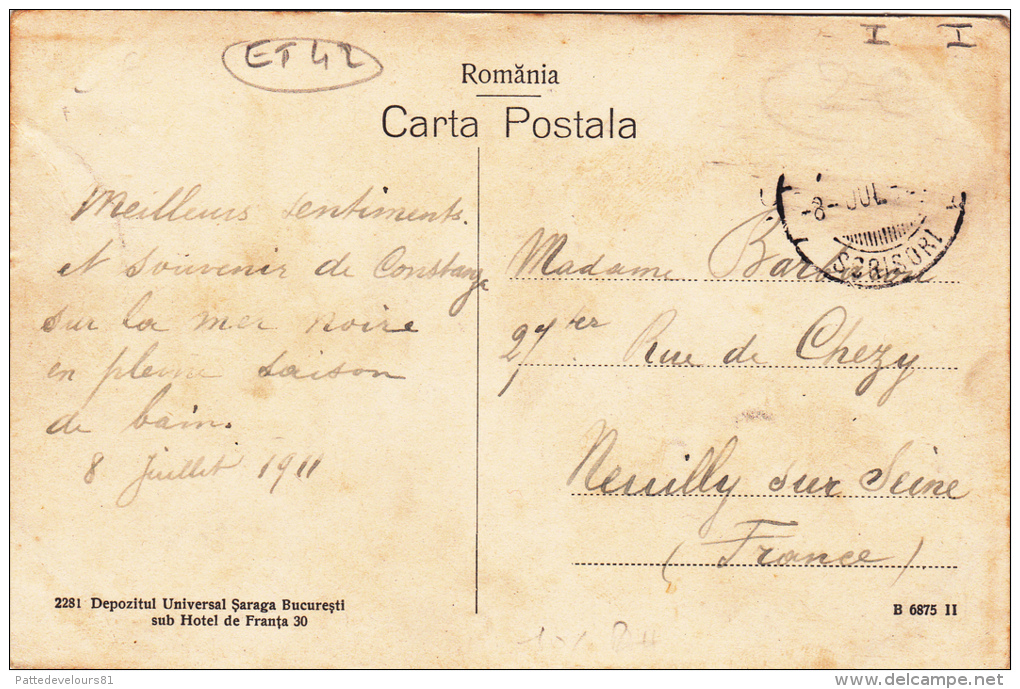 ET 42
I I
România
Carta Postala
Meilleurs sentiments.
et souvenir de Constanza
sur la mer noire
en pleine saison
de bain.
8 Juillet 1911
-8- JUL
SCRISORI
Madame
27 ter Rue de Chezy
Neuilly sur Seine
(France)
2281 Depozitul Universal Șaraga București
sub Hotel de Franța 30
B 6875 II
Pattedevelours81
delcampe.net